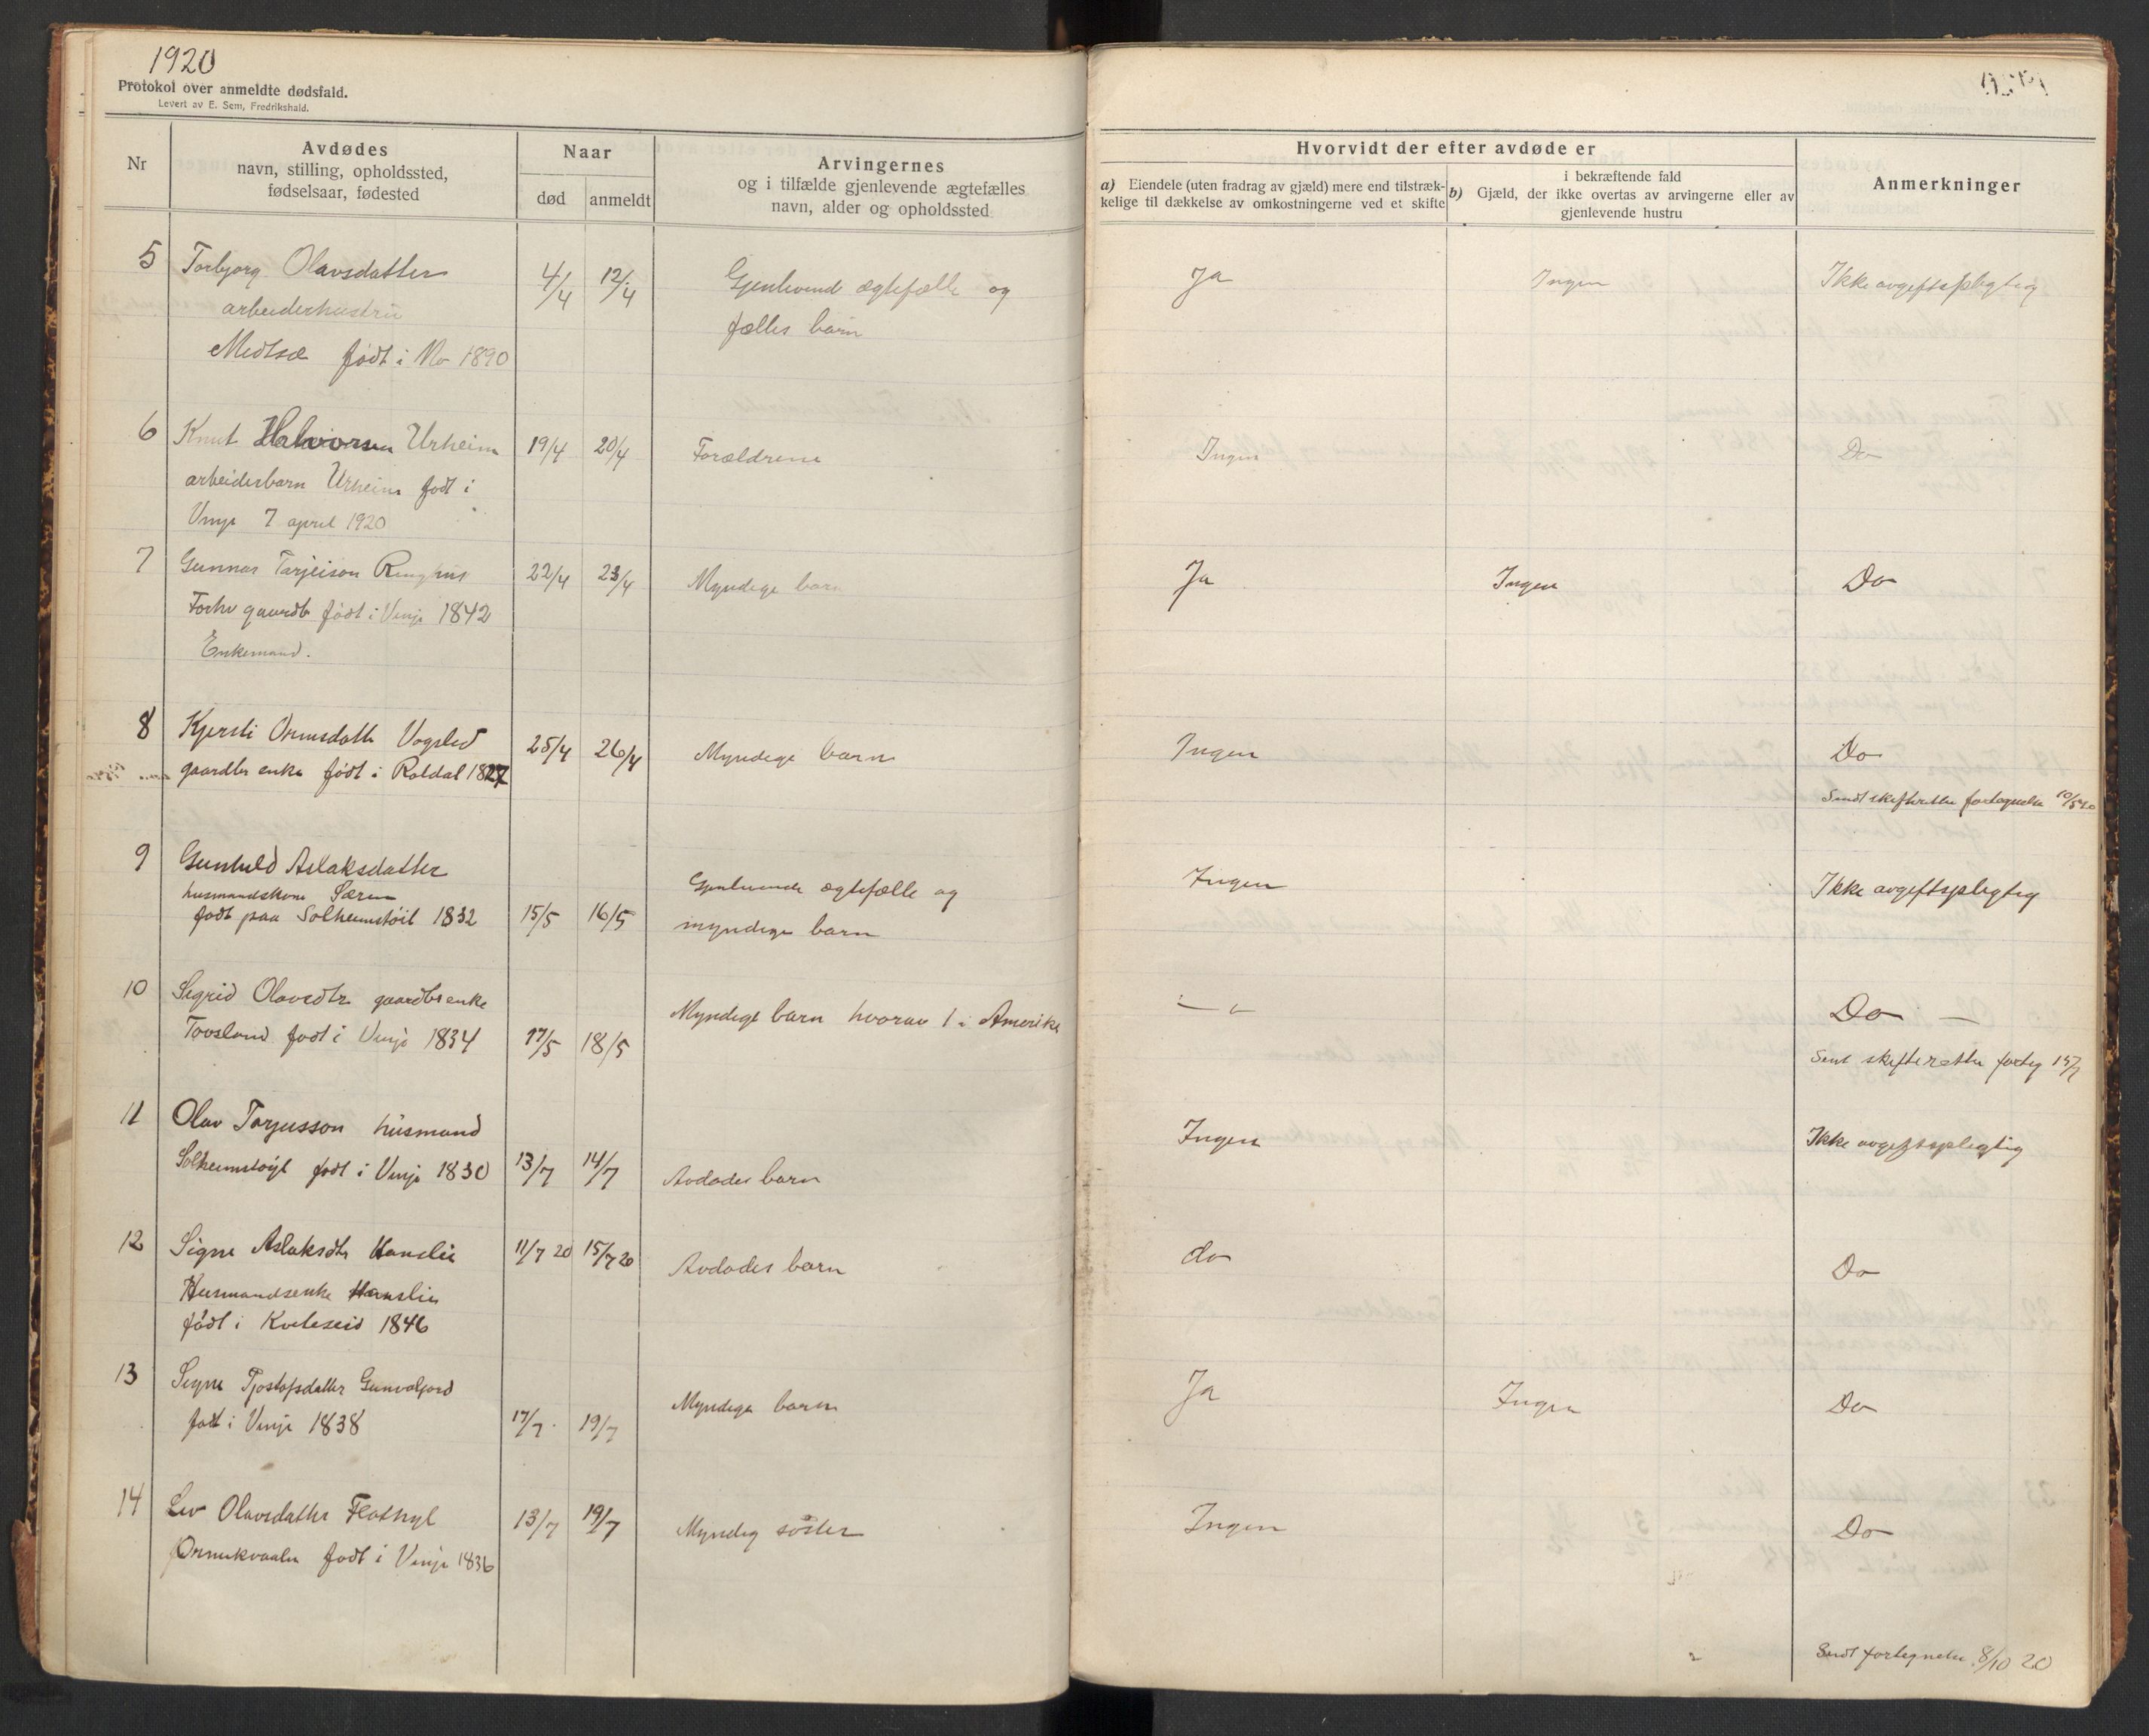 1920
Protokol over anmeldte dødsfald.
Levert av E. Sem, Fredrikshald.
Nr
Avdødes
navn, stilling, opholdssted,
fødselsaar, fødested
Naar
død
anmeldt
Arvingernes
og i tilfælde gjenlevende ægtefælles
navn, alder og opholdssted
Hvorvidt der efter avdøde er
a) Eiendele (uten fradrag av gjæld) mere end tilstræk-
kelige til dækkelse av omkostningerne ved et skifte
i bekræftende fald
b) Gjæld, der ikke overtas av arvingerne eller av
gjenlevende hustru
Anmerkninger
5 Torbjorg Olavsdatter 4/4 12/4 Gjenlevende ægtefælle og Ja Ingen Ikke avgiftspligtig
arbeiderhustru fælles barn
Medtsæ født i Mo 1890
6 Knut Halvorsen Urheim 19/4 20/4 Forældrene Ingen Do
arbeidsbarn Urheim født i
Vinje 7 april 1920
7 Gunnar Tarjeison Ringhus 22/4 23/4 Myndige barn Ja Ingen Do
Forhv gaardb født i Vinje 1842
Enkemand.
8 Kjersti Ormsdatt Vogsled 25/4 26/4 Myndige barn Ingen Do
gaardbr enke født i Roldal 1827
Sendt skifteretten fortegnelse 10/5 20
9 Gunhuld Aslaksdatter Gjenlevende ægtefælle og Ingen Ikke avgiftspligtig
husmandskone
født paa Solheimstøil 1832 15/5 16/5 myndige barn
10 Sigrid Olavsdtr gaardbr enke Myndige barn hvorav 1 i Amerika Do —
Tovsland født i Vinje 1834 17/5 18/5
Sent skifteretten forteg 15/7
11 Olav Torjusson husmand Ingen Ikke avgiftspligtig
Solheimstøyl født i Vinje 1830 13/7 14/7 Avdødes barn
12 Signe Aslaksdtr Hanslie 11/7 20 15/7 20 Avdødes barn do Do
Husmandsenke Hanslie
født i Kviteseid 1846
13 Signe Tjostofsdatter Gunvaljord Myndige barn Ja Ingen Do
født i Vinje 1838 17/7 19/7
14 Liv Olavsdatter Flothyl 13/7 19/7 Myndig søster Ingen Do
Ormekvaalen født i Vinje 1836
Sendt fortegnelse 8/10 20